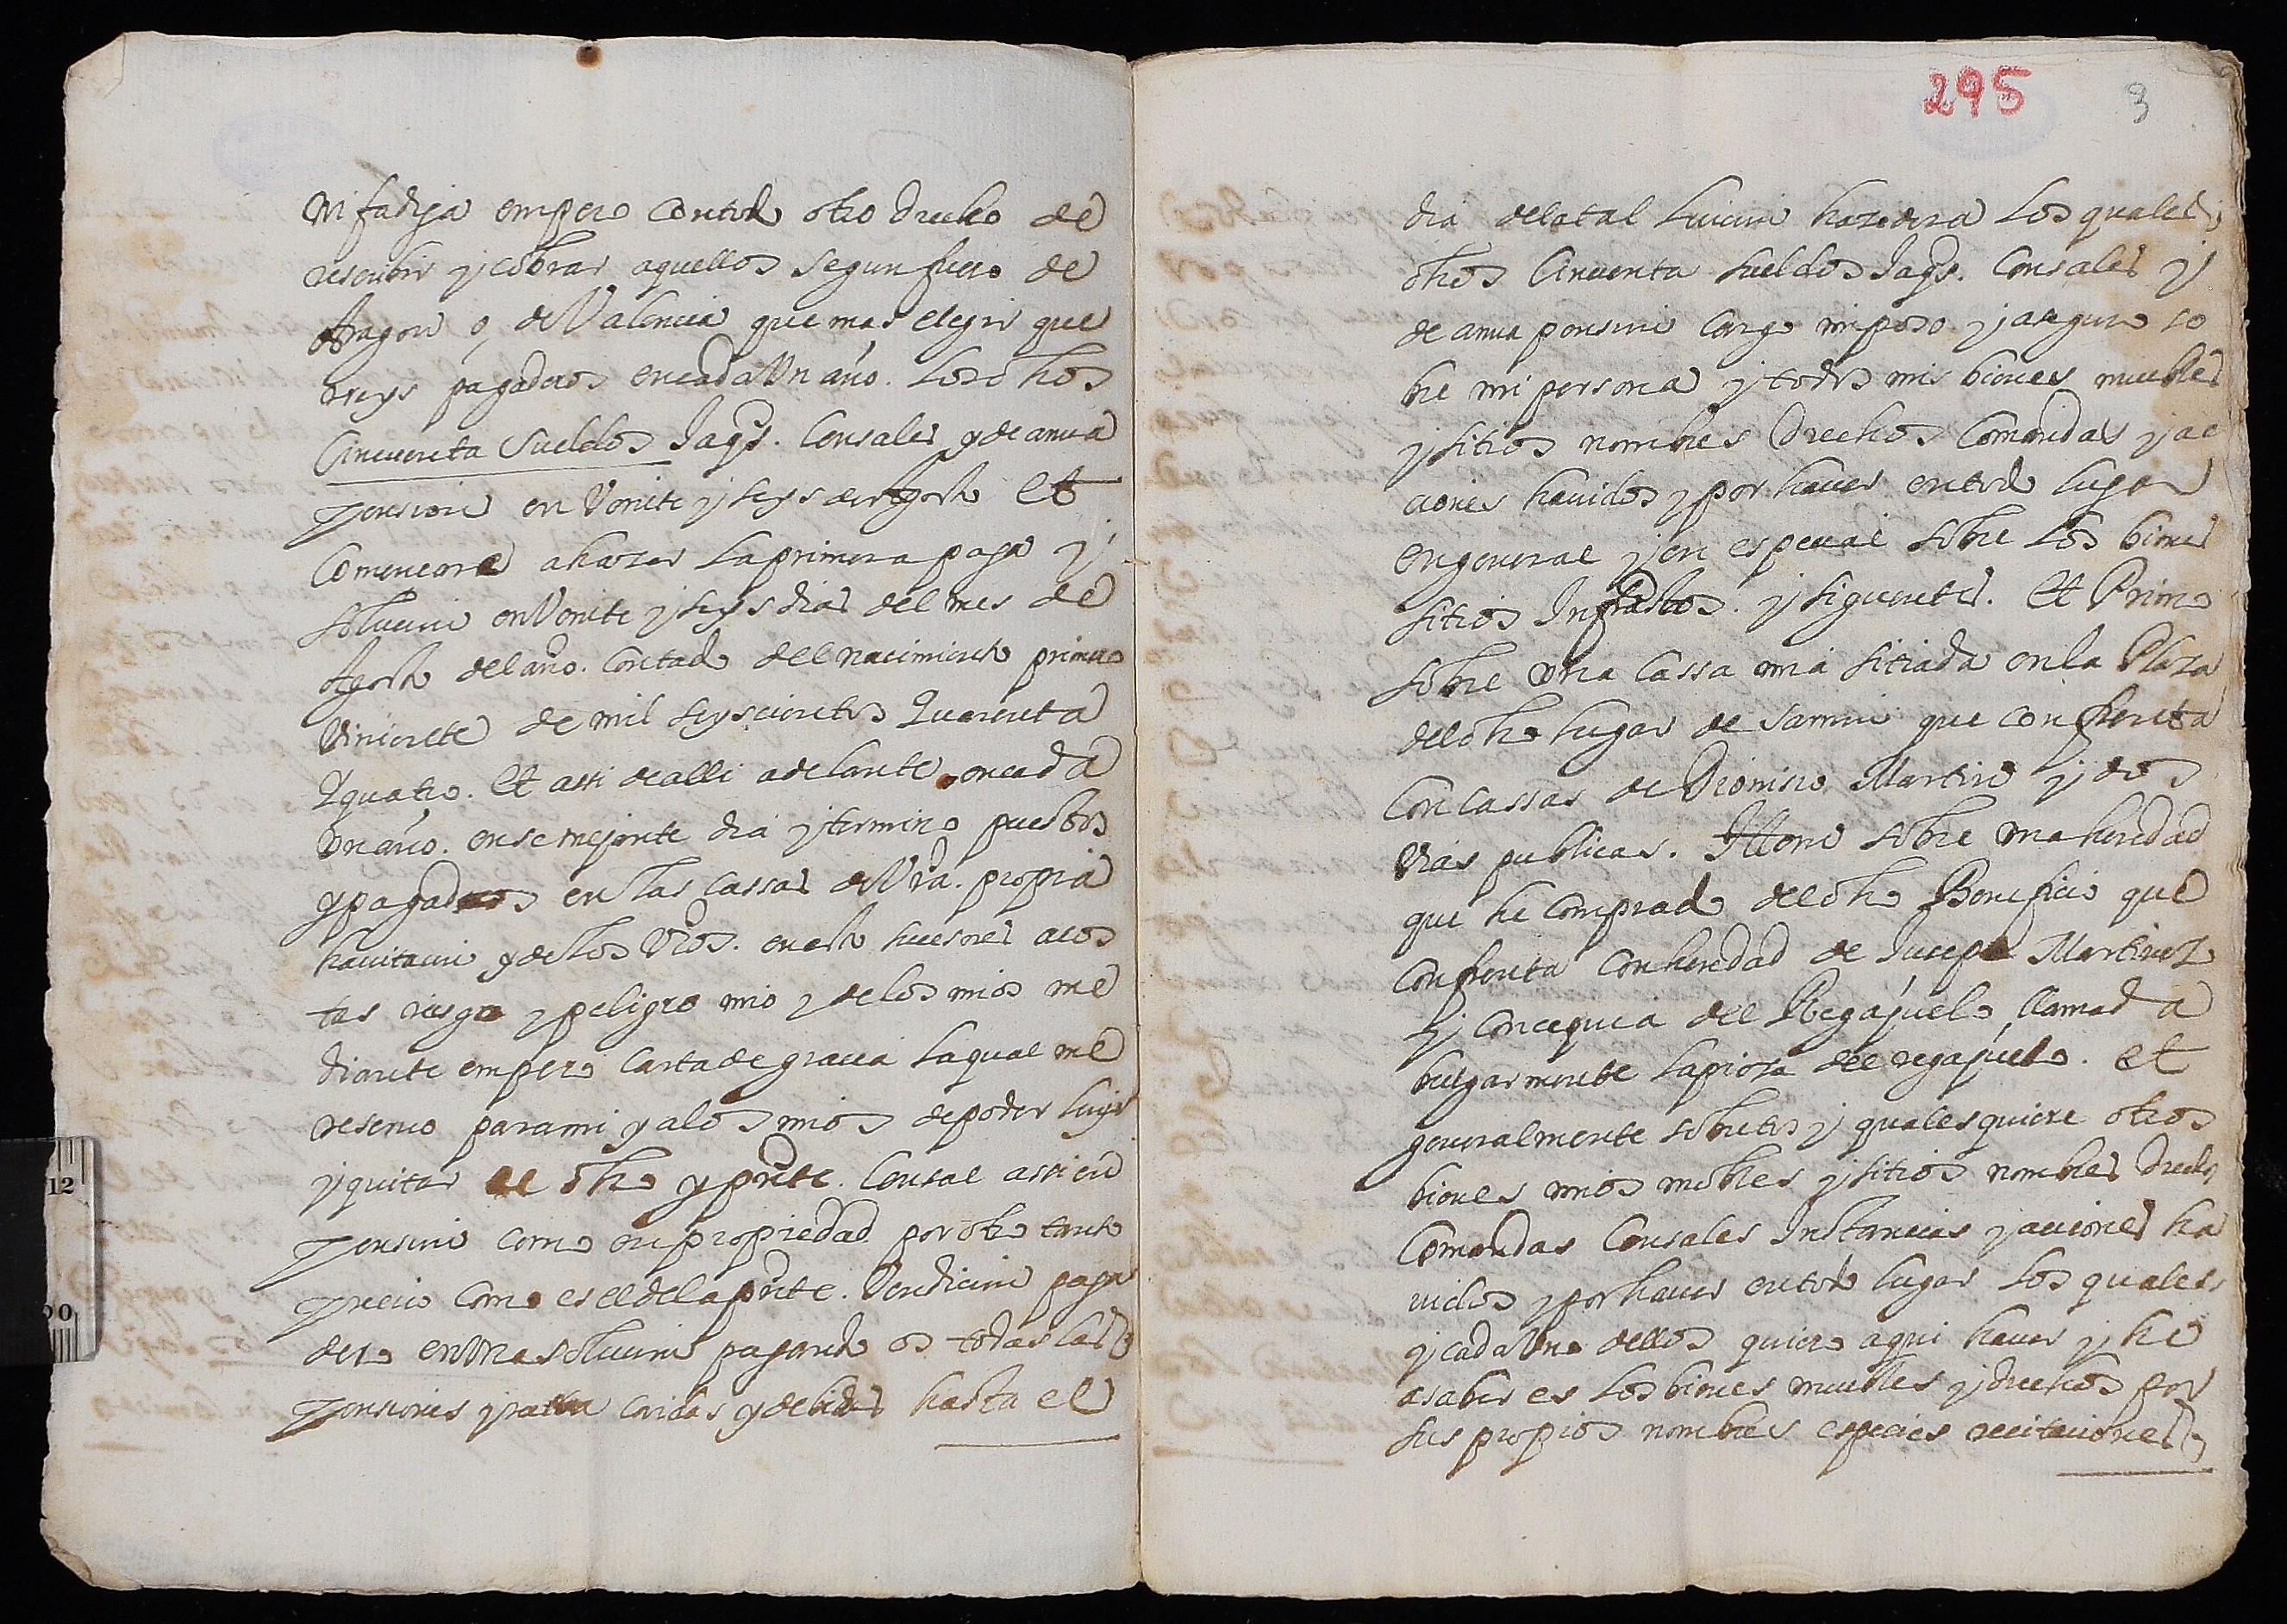 ni fadiga empero con todo otro drecho de
rescibir y cobrar aquellos segun fuero de
Aragon o, de Valencia que mas elegir que
rreys pagaderos en cada Un año. los dhos
Cincuenta Sueldos Jaqs. Censales y de anua
pension en Veinte y seys de Agosto Et
Comencare a hazer la primera paga y
solucion en Veinte y seys dias del mes de
Agosto del año. Contado del nacimiento primero
Viniente de mil seyscientos Quarenta
Y quatro. Et assi de alli adelante en cada
Un año. en semejante dia y termino puestos
y pagados en las cassas de Vra. propia
havitacion y de los Vros. en esto hucsnes acos
tas riesgo y peligro mio y de los mios me
diante empero carta de gracia la qual me
reservo para mi y a los mios de poder luyr
y quitar el dho y prnte. Censal assi en
pension como en propiedad por otro tanto
precio como es el de la prnte. Vendicion paga
dero en Una solucion pagando os todas las
pensiones y rata coridas y debidas hasta el
295 3
dia de la tal luicion hazedera los quales
dhos Cincuenta sueldos Jaqs. Censales y
de anua pension cargo imposo y aseguro so
bre mi persona y todos mis bienes muebles
y sitios nombres Drechos Comandas y ac
ciones havidos y por haver en todo lugar
en general y en especial sobre los bienes
sitios Infrasptos. y siguientes. Et Primo
sobre Una Cassa mia sitiada en la Plaza
del dho lugar de Samin que confrenta
Con cassas de Dionisio Martin y dos
Vias publicas. Ittem sobre Una heredad
que he Comprado del dho Beneficio que
Confrenta Con heredad de Jusepe Martinez
y con cequia del Regajuelo, llamada
bulgarmente la pieza del regajuelo. Et
generalmente sobre todos y qualesquiere otros
bienes mios mobles y sitios nombres Drechos
Comandas Censales Instancias y acciones ha
vidos y por haver en todo lugar los quales
y cada Uno dellos quiero aqui haver y he
a saber es los bienes muebles y drechos por
sus propios nombres especies recitaciones